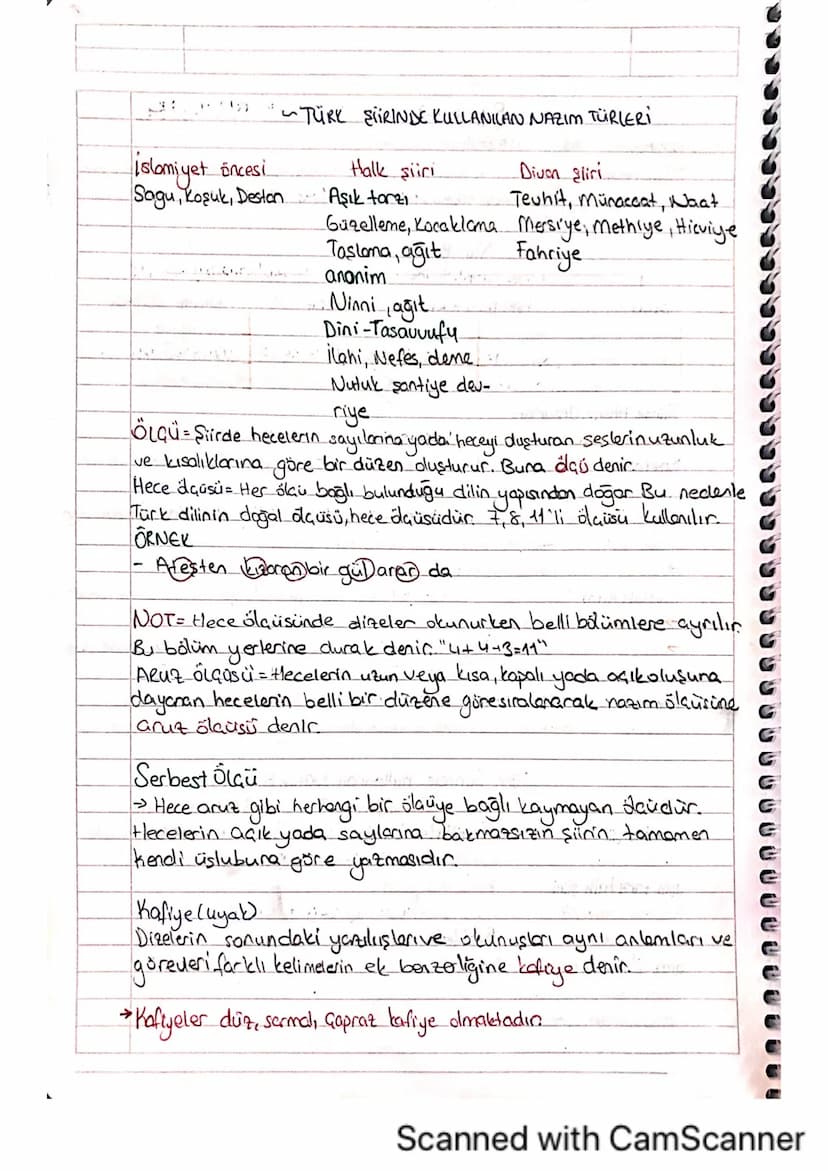 ~ TÜRK ŞİİRİNDE KULLANILAN NAZIM TÜRLERİ
İslamiyet öncesi Halk şiiri Divan şiiri
Sagu, Koşuk, Destan Aşık tarzı Tevhit, Münacaat, Naat
Güzelleme, Kocaklama Mersiye, Methiye, Hicviye
Taşlama, ağıt Fahriye
anonim
Ninni, ağıt
Dini-Tasavvufy
İlahi, Nefes, deme
Nutuk şantiye dev-
riye
ÖLÇÜ= Şiirde hecelerin sayılarına yada heceyi duşturan seslerin uzunluk
ve kısalıklarına göre bir düzen oluşturur. Buna ölçü denir.
Hece ölçüsü= Her ölçü bağlı bulunduğu dilin yapısından doğar Bu nedenle
Türk dilinin doğal ölçüsü, hece ölçüsüdür 7, 8, 11'li ölçüsü kullanılır.
ÖRNEK
- Ateşten kızaran bir gül arar da
NOT= Hece ölçüsünde dizeler okunurken belli bölümlere ayrılır.
Bu bölüm yerlerine durak denir. "4+4+3=11"
ARUZ ÖLÇÜSÜ= Hecelerin uzun veya kısa, kapalı yada açık oluşuna
dayanan hecelerin belli bir düzene göre sıralanarak nazım ölçüsüne
aruz ölçüsü denir.
Serbest Ölçü
→ Hece aruz gibi herhangi bir ölçüye bağlı kaymayan ölçüdür.
Hecelerin açık yada saylarına bakmaksızın şiirin tamamen
kendi üslubuna göre yazmasıdır.
Kafiye (uyak)
Dizelerin sonundaki yazılışları ve okunuşları aynı anlamları ve
görevleri farklı kelimelerin ek benzerliğine kafiye denir.
→ Kafiyeler düz, sarmal, Çapraz kafiye olmaktadır.
Scanned with CamScanner